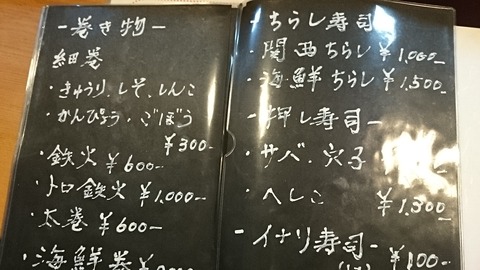 ー巻き物ー
細巻
・きゅうり、しそ、しんこ
・かんぴょう、ごぼう
¥300-
・鉄火 ¥600-
・トロ鉄火 ¥1,000-
・太巻 ¥600-
・海鮮巻
ーちらし寿司ー
・関西ちらし ¥1,000-
・海鮮ちらし ¥1,500-
ー押し寿司ー
・サバ、穴子
・へしこ ¥1,300-
ーイナリ寿司ー
¥100-